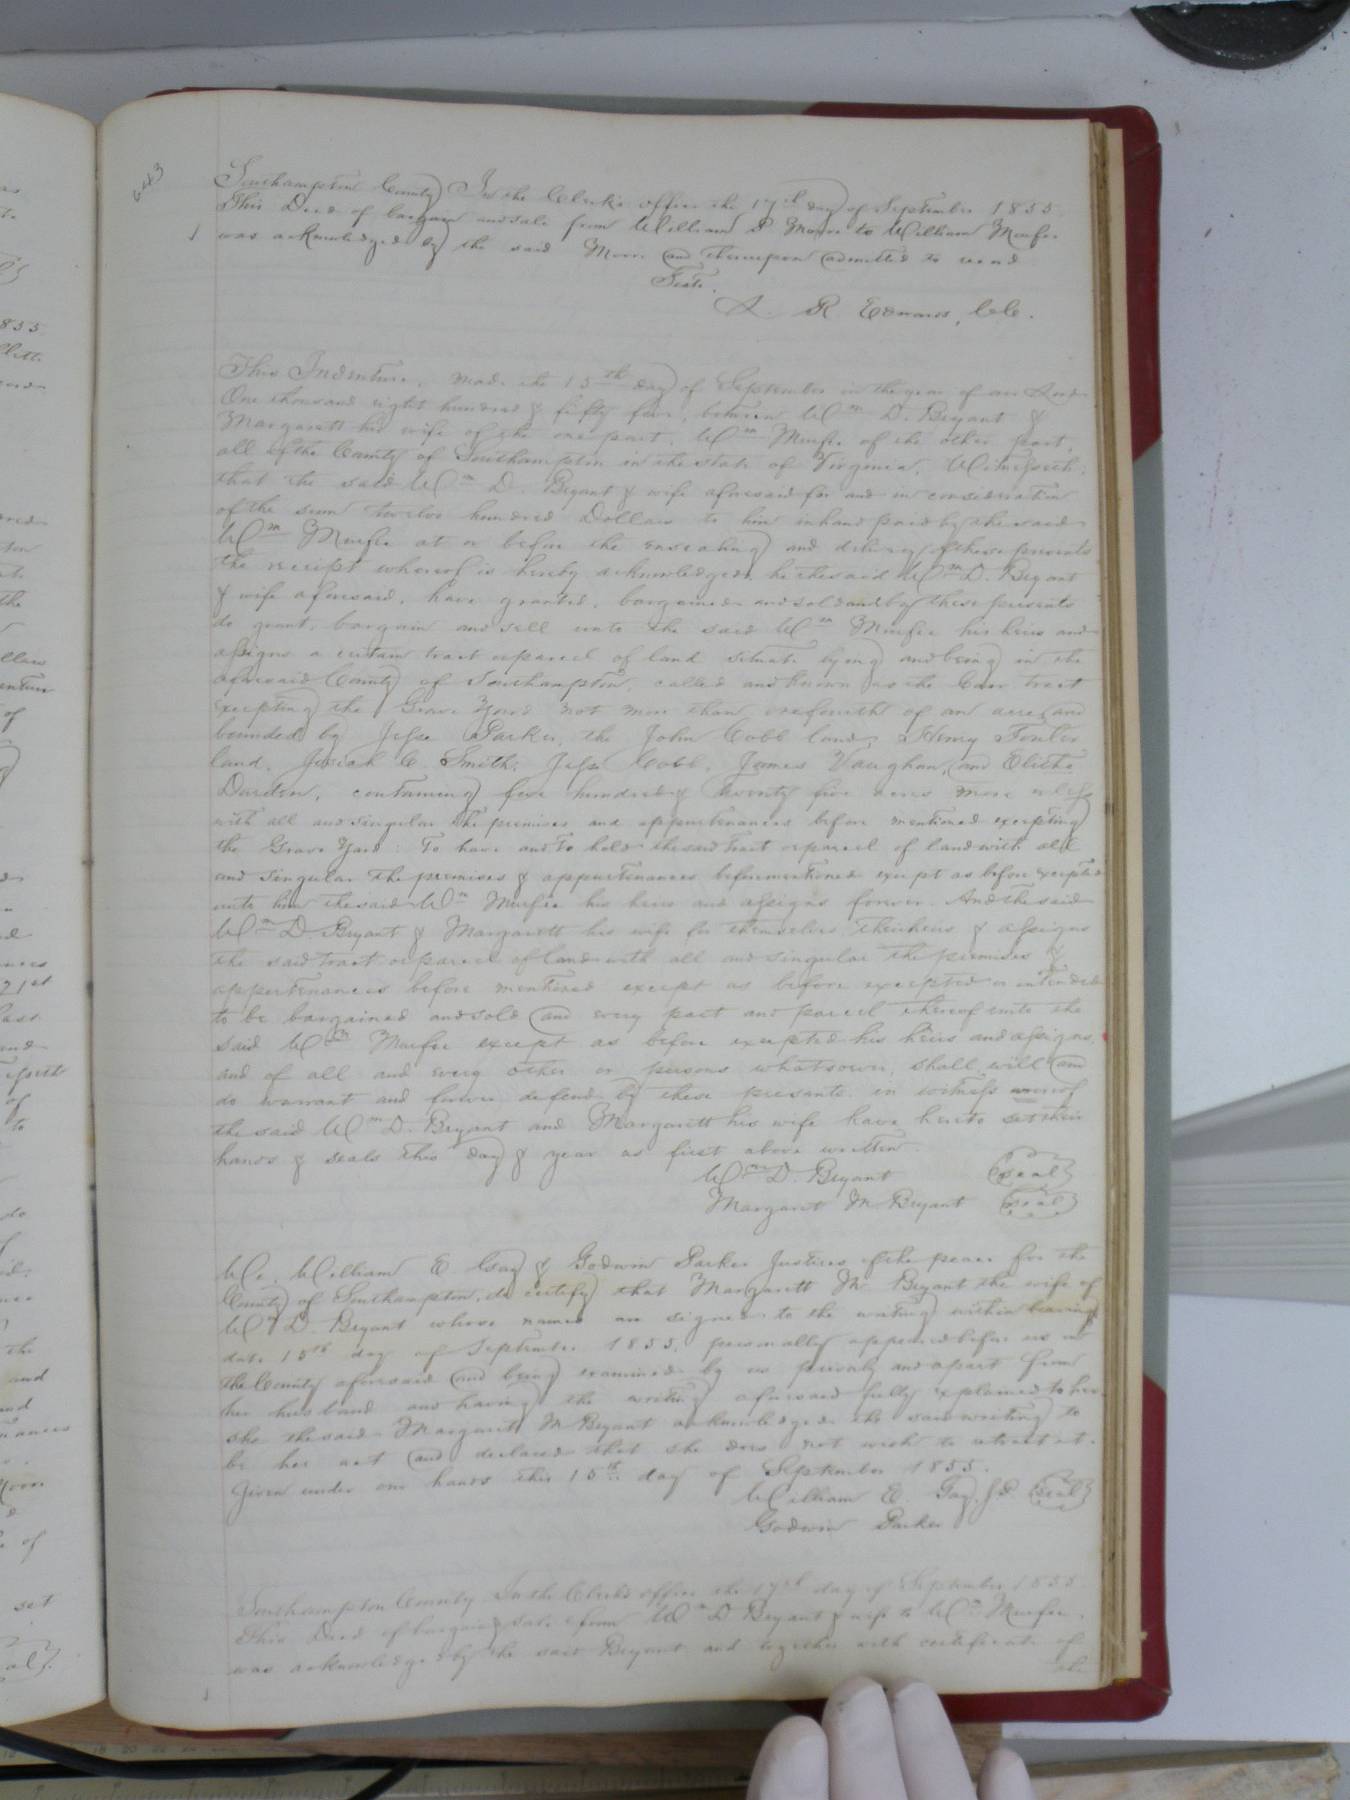 643
Southampton County In the Clerk's office the 17th day of September 1855
This Deed of bargain and sale from William P Moore to William Murfee
was acknowledged by the said Moore and thereupon admitted to record
Teste.
L. R Edwards, CC.
This Indenture, made the 15th day of September in the year of our Lord
One thousand eight hundred & fifty five, between Wm D. Bryant &
Margarett his wife of the one part, Wm Murfee of the other part,
all of the County of Southampton in the state of Virginia, Witnesseth:
that the said Wm D. Bryant & wife aforesaid for and in consideration
of the sum twelve hundred Dollars to him in hand paid by the said
Wm Murfee at or before the ensealing and delivery of these presents
the receipt whereof is hereby acknowledged, he the said Wm D. Bryant
& wife aforesaid, have granted, bargained and sold and by these presents
do grant, bargain and sell unto the said Wm Murfee his heirs and
assigns a certain tract or parcel of land situate lying and being in the
aforesaid County of Southampton, called and known as the Carr tract
excepting the Grave Yard not more than one fourth of an acre, and
bounded by Jesse Parker, the John Cobb land, Henry Fowler
land, Josiah C. Smith, Jesse Cobb, James Vaughan, and Elisha
Darden, containing five hundred & twenty five acres more or less
with all and singular the premises and appurtenances before mentioned excepting
the Grave Yard: To have and to hold the said tract or parcel of land with all
and singular the premises & appurtenances before mentioned except as before excepted
unto him the said Wm Murfee his heirs and assigns forever. And the said
Wm D Bryant & Margarett his wife for themselves, their heirs & assigns
the said tract or parcel of land with all and singular the premises &
appurtenances before mentioned except as before excepted or intended
to be bargained and sold and every part and parcel thereof unto the
said Wm Murfee except as before excepted his heirs and assigns,
and of all and every other or persons whatsoever, shall will and
do warrant and forever defend by these presents. in witness whereof
the said Wm D. Bryant and Margarett his wife have hereto set their
hands & seals this day & year as first above written.
Wm D. Bryant {seal}
Margarett M Bryant {seal}
We, William E Gay & Godwin Parker Justices of the peace for the
County of Southampton, do certify that Margarett M. Bryant the wife of
Wm D. Bryant whose names are signed to the writing within bearing
date 15th day of September 1855, personally appeared before us in
the County aforesaid and being examined by us privily and apart from
her husband and having the writing aforesaid fully explained to her
she the said Margarett M Bryant acknowledged the same writing to
be her act and declared that she does not wish to retract it.
Given under our hands this 15th day of September 1855.
William E. Gay, J.P. {seal}
Godwin Parker
Southampton County In the Clerk's office the 17th day of September 1855
This Deed of bargain & sale from Wm D Bryant & wife to Wm Murfee.
was acknowledged by the said Bryant and together with certificate of